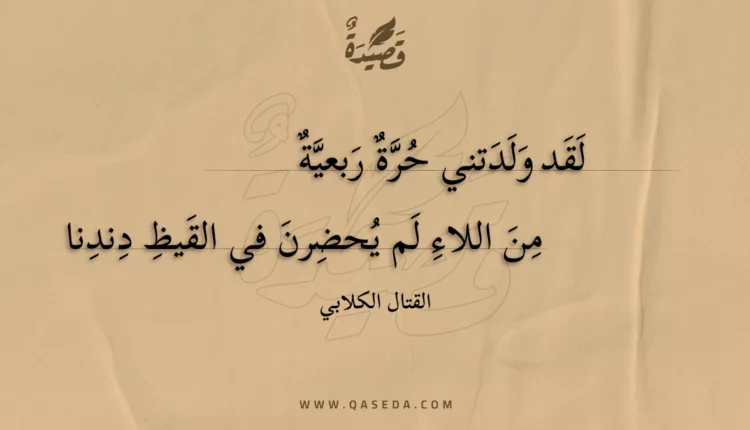 قَصِيْدَةٌ
لَقَد وَلَدَتني حُرَّةٌ رَبعيَّةٌ
مِنَ اللاءِ لَم يُحضِرنَ في القَيظِ دِندِنا
القتال الكلابي
WWW.QASEDA.COM